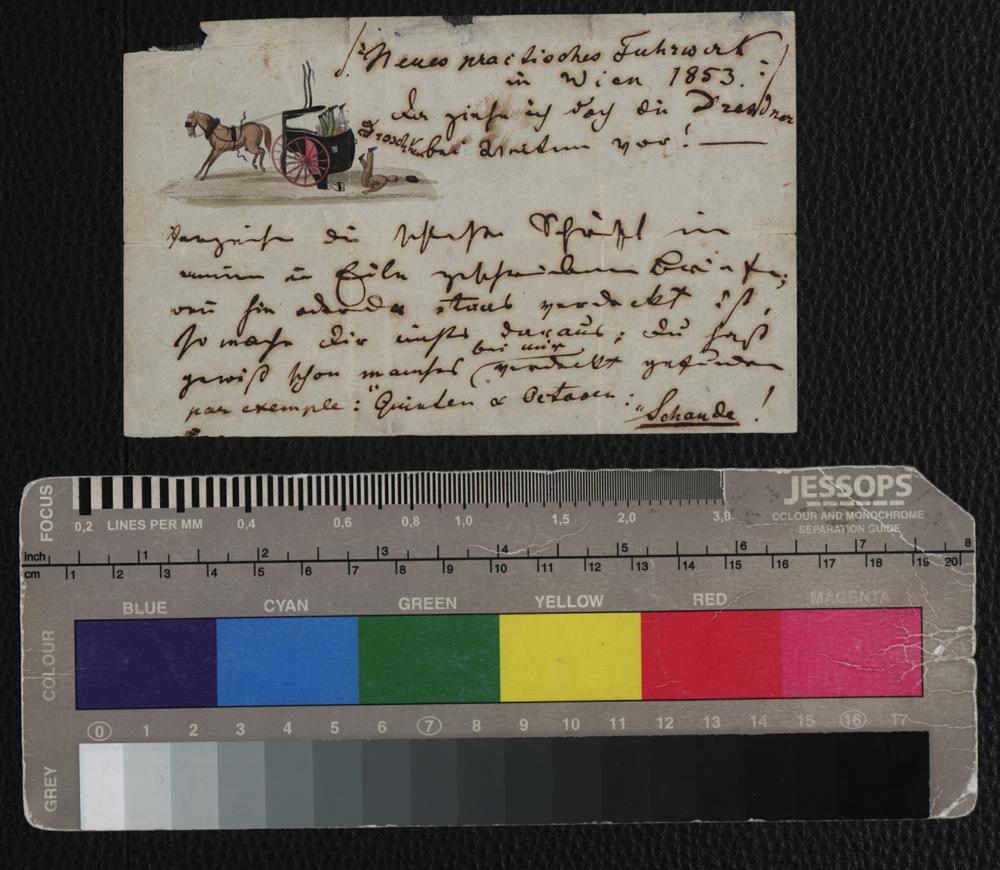 /: Neues practisches Fuhrwerk
in Wien 1853. :/
da ziehe ich doch die Dresdner
Droschken bei Weitem vor! —
Verzeihe die Schäfchen in
meinem in Eile geschriebenen Briefe;
wenn hie oder da etwas verdeckt ist,
so mache dir nichts daraus; du hast
bei mir
gewiß schon manches verdeckt gefunden
par exemple: "Quinten & Octaven:
"Schande!
JESSOPS
COLOUR AND MONOCHROME
SEPARATION GUIDE
FOCUS
0,2 LINES PER MM 0,4 0,6 0,8 1,0 1,5 2,0 3,0
inch 1 2 3 4 5 6 7 8
cm 1 2 3 4 5 6 7 8 9 10 11 12 13 14 15 16 17 18 19 20
BLUE CYAN GREEN YELLOW RED MAGENTA
COLOUR
0 1 2 3 4 5 6 7 8 9 10 11 12 13 14 15 16 17
GREY